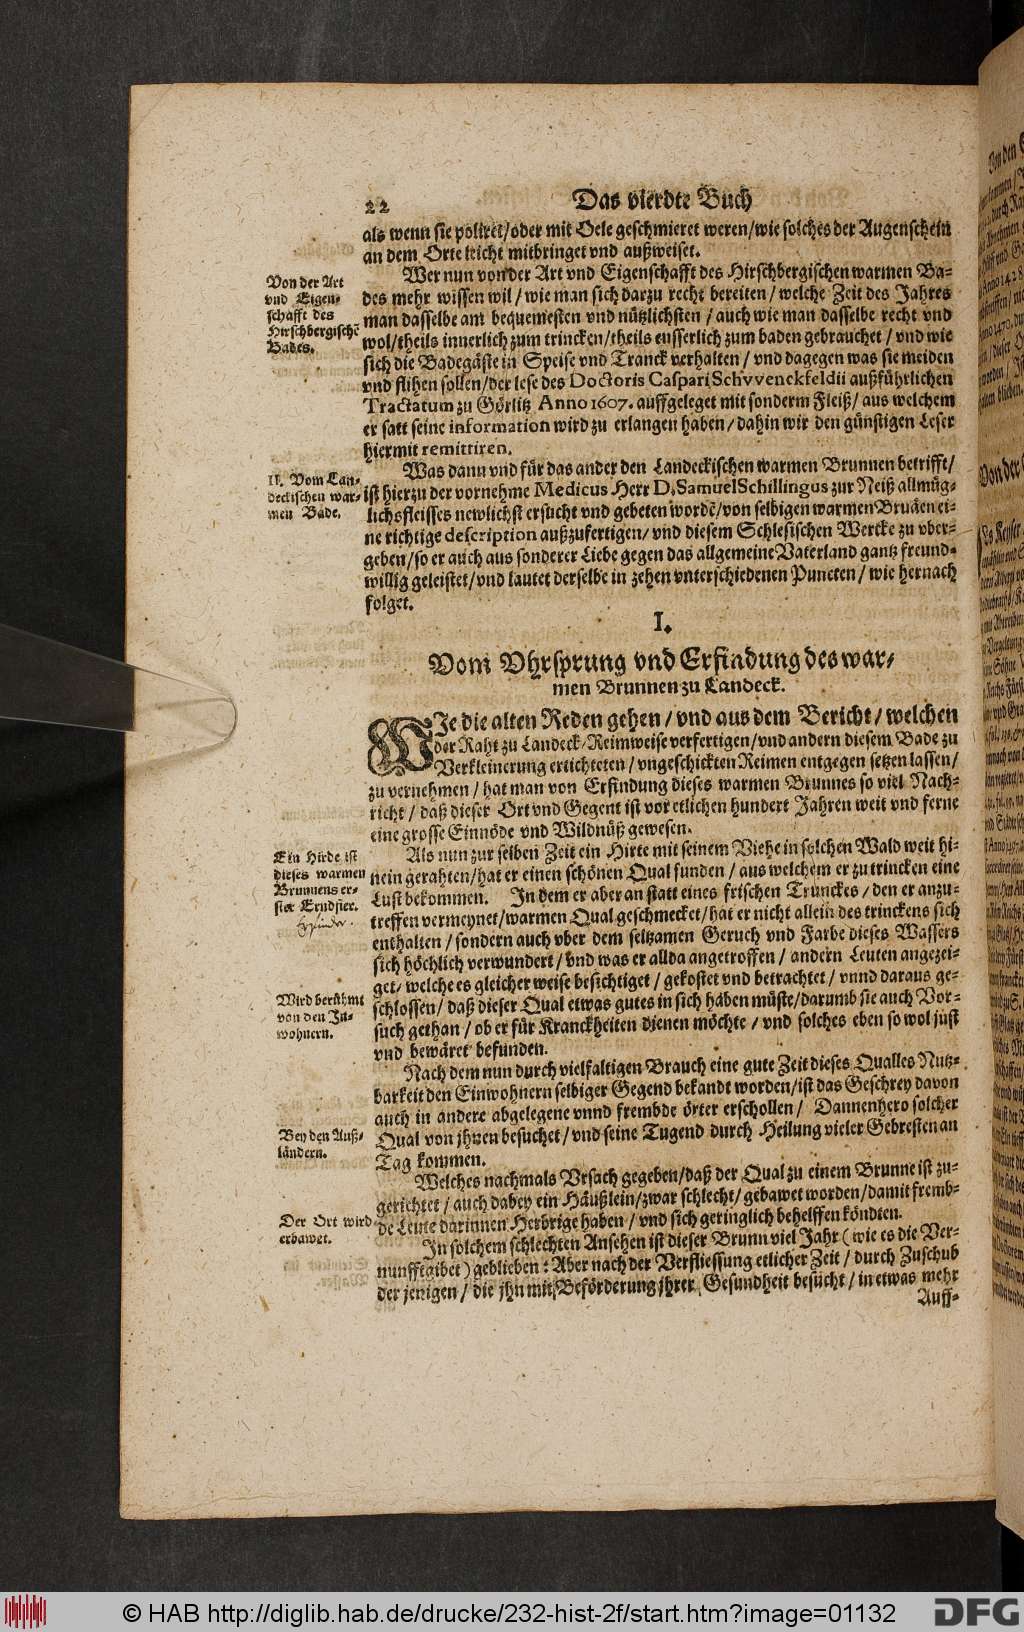 22 Das vierdte Buch
als wenn sie poliret/oder mit Oele geschmieret weren/wie solches der Augenschein
an dem Orte leicht mitbringet vnd außweiset.
Von der Art
vnd Eigen-
schafft des
Hirschbergischẽ
Bades.
Wer nun von der Art vnd Eigenschafft des Hirschbergischen warmen Ba-
des mehr wissen wil/wie man sich darzu recht bereiten/welche Zeit des Jahres
man dasselbe am bequemesten vnd nützlichsten/auch wie man dasselbe recht vnd
wol/theils innerlich zum trincken/theils eusserlich zum baden gebrauchet/vnd wie
sich die Badegäste in Speise vnd Tranck verhalten/vnd dagegen was sie meiden
vnd flihen sollen/der lese des Doctoris Caspari Schvvenckfeldii außführlichen
Tractatum zu Görlitz Anno 1607. auffgeleget mit sonderm Fleiß/aus welchem
er satt seine information wird zu erlangen haben/dahin wir den günstigen Leser
hiermit remittiren.
II. Vom Lan-
deckischen war-
men Bade.
Was dann vnd für das ander den Landeckischen warmen Brunnen betrifft/
ist hierzu der vornehme Medicus Herr D. Samuel Schillingus zur Neiß allmüg-
lichsfleisses newlichst ersucht vnd gebeten wordẽ/von selbigen warmen Brunnen ei-
ne richtige description außzufertigen/vnd diesem Schlesischen Wercke zu vber-
geben/so er auch aus sonderer Liebe gegen das allgemeine Vaterland gantz freund-
willig geleistet/vnd lautet derselbe in zehen vnterschiedenen Puncten/wie hernach
folget.
I.
Vom Vhrsprung vnd Erfindung des war-
men Brunnen zu Landeck.
WJe die alten Reden gehen/vnd aus dem Bericht/welchen
der Raht zu Landeck/Reimweise verfertigen/vnd andern diesem Bade zu
Verkleinerung ertichteten/vngeschickten Reimen entgegen setzen lassen/
zu vernehmen/hat man von Erfindung dieses warmen Brunnes so viel Nach-
richt/daß dieser Ort vnd Gegent ist vor etlichen hundert Jahren weit vnd ferne
eine grosse Einnöde vnd Wildnüß gewesen.
Ein Hirde ist
dieses warmen
Brunnens er-
ster Erndfier.
Als nun zur selben Zeit ein Hirte mit seinem Viehe in solchen Wald weit hi-
nein gerahten/hat er einen schönen Qual funden/aus welchem er zu trincken eine
Lust bekommen. In dem er aber an statt eines frischen Trunckes/den er anzu-
treffen vermeynet/warmen Qual geschmecket/hat er nicht allein des trinckens sich
enthalten/sondern auch vber dem seltzamen Geruch vnd Farbe dieses Wassers
sich höchlich verwundert/vnd was er allda angetroffen/andern Leuten angezei-
get/welche es gleicher weise besichtiget/gekostet vnd betrachtet/vnnd daraus ge-
schlossen/daß dieser Qual etwas gutes in sich haben müste/darumb sie auch Vor-
such gethan/ob er für Kranckheiten dienen möchte/vnd solches eben so wol just
vnd bewäret befunden.
Wird berühmt
von den In-
wohnern.
Nach dem nun durch vielfaltigen Brauch eine gute Zeit dieses Qualles Nutz-
barkeit den Einwohnern selbiger Gegend bekandt worden/ist das Geschrey davon
auch in andere abgelegene vnnd frembde örter erschollen/ Dannenhero solcher
Qual von jhnen besuchet/vnd seine Tugend durch Heilung vieler Gebresten an
Tag kommen.
Bey den Auß-
ländern.
Welches nachmals Vrsach gegeben/daß der Qual zu einem Brunne ist zu-
gerichtet/auch dabey ein Häußlein/zwar schlecht/gebawet worden/damit fremb-
de Leute darinnen Herbrige haben/vnd sich geringlich behelffen köndten.
Der Ort wird
erbawet.
In solchem schlechten Ansehen ist dieser Brunn viel Jahr (wie es die Ver-
nunfft gibet) geblieben: Aber nach der Verfliessung etlicher Zeit/durch Zuschub
der jenigen/die jhn mit Beförderung jhrer Gesundheit besucht/in etwas mehr
Auff-
© HAB http://diglib.hab.de/drucke/232-hist-2f/start.htm?image=01132
DFG